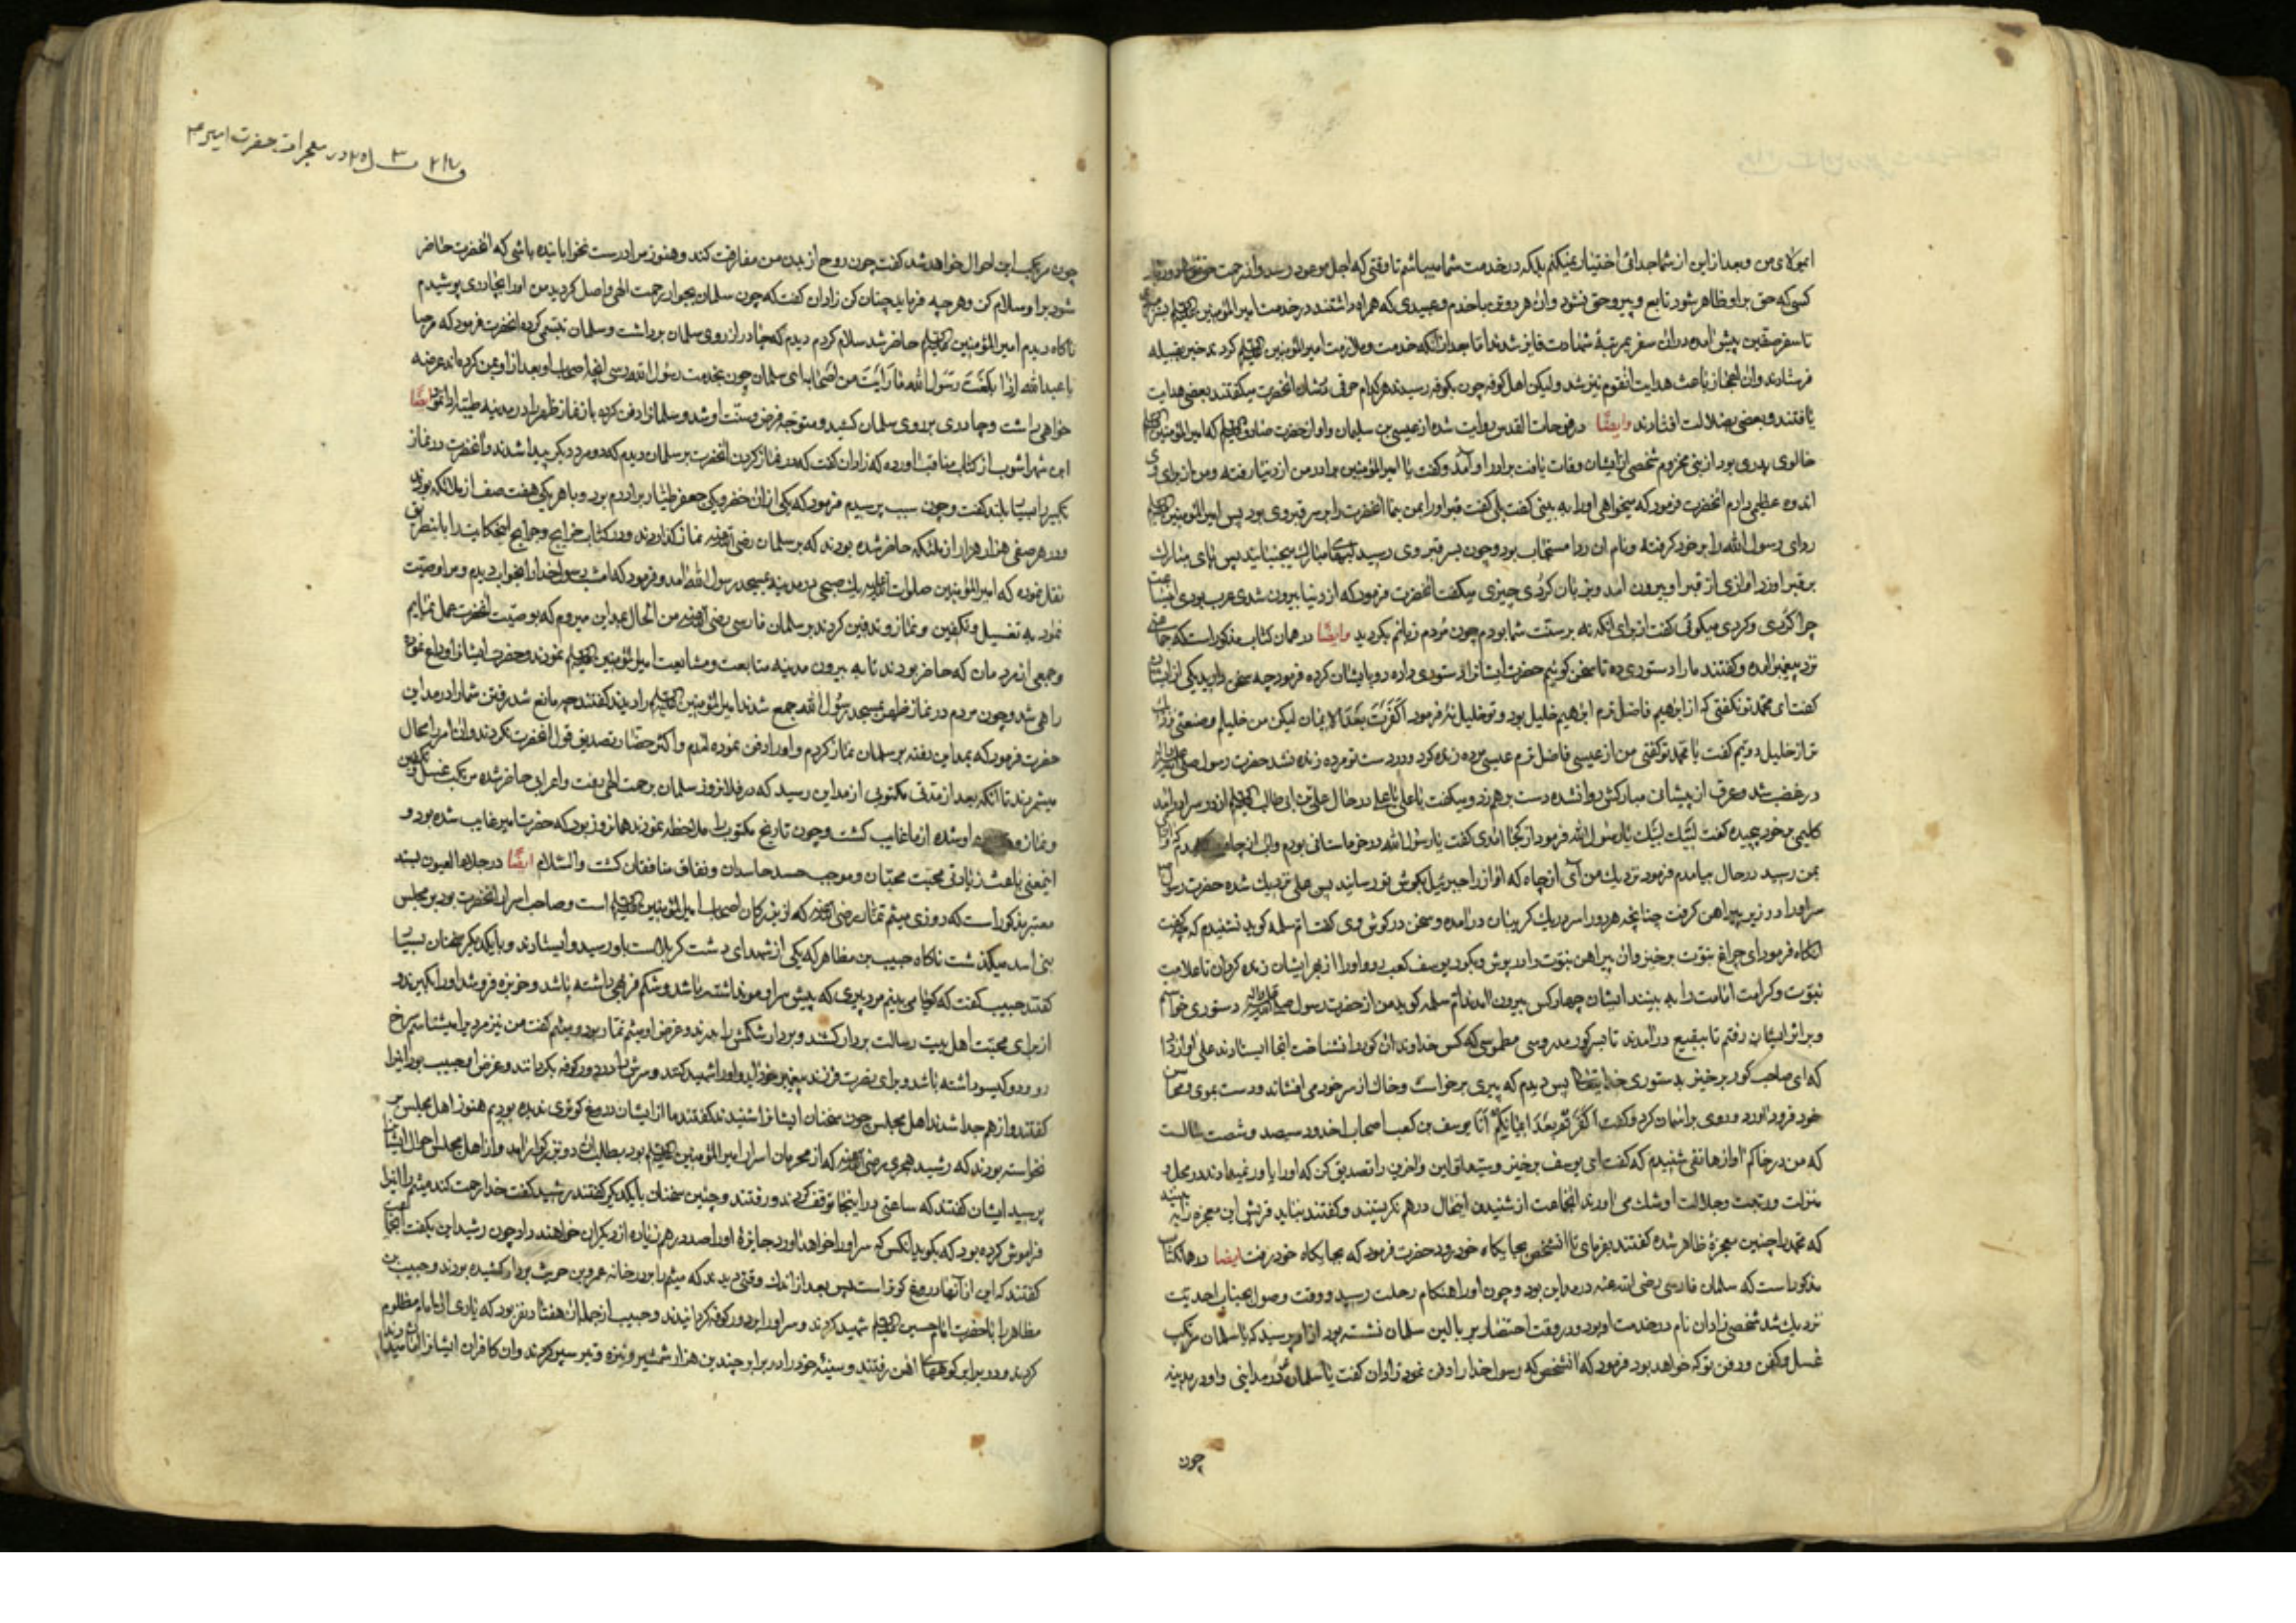 ایمولای من و بعد از این از شما جدائی اختیار نمیکنم بلکه در خدمت شما میباشم تا وقتی که اجل موعود رسد و از رحمت
کسی که حق بر او ظاهر شود تابع و پیرو حق نشود و ان هر دو تن با خدم و عبیدی که همراه داشتند در خدمت امیر المؤمنین
تا سفر صفین پیش امد در ان سفر بمرتبهٔ شهادت فایز شدند تا جدا از انکه خدمت و ملازمت امیر المؤمنین کردند خبر بقبیله
فرستادند و ان اعجاز باعث هدایت انقوم نیز شد و لیکن اهل کوفه چون بکوفه رسیدند هر کدام حرفی بشان انحضرت میگفتند بعضی هدایت
یافتند و بعضی بضلالت افتادند وایضًا در فوحات القدس روایت شده از عیسی بن سلیمان و او از حضرت صادق که امیر المؤمنین
خالوی پدری بود از بنی مخزوم شخصی از ایشان وفات یافت برادر او آمد و گفت یا امیر المؤمنین برادر من از دنیا رفته و من از برای
اندوه عظیمی دارم انحضرت فرمود که میخواهی او را به بینی گفت بلی گفت قبر او را بمن بنما انحضرت را بر سر قبر وی برد پس امیر المؤمنین
ردای رسول الله را بر خود گرفته و نام ان ردا مستجاب بود و چون بسر قبر وی رسید لبهای مبارک بجنبانید پس پای مبارک
بر قبر او زد اوازی از قبر او بیرون امد و بزبان کردی چیزی میگفت انحضرت فرمود که از دنیا بیرون شدی عرب بودی
چرا کردی و کردی میگوئی گفت از برای انکه نه بر سنّت شما بودم چون مُردم زبانم بگردید وایضًا در همان کتاب مذکور است که
نزد پیغمبر امده و گفتند ما را دستوری ده تا سخن گوئیم حضرت ایشانرا دستوری داده رو بایشان کرده فرمود چه سخن دارید یکی از
گفت ای محمّد تو نگفتی که از ابرهیم فاضل ترم ابرهیم خلیل بود و تو خلیل نهٔ فرمود اَکَفَرتَ بَعْدَ الایمان لیکن من خلیلم و صنعتی
تر از خلیل دویّم گفت یا محمّد تو گفتی من از عیسی فاضل ترم عیسی مرده زنده کرد و در دست تو مرده زنده نشد حضرت رسول
در غضب شد و عرق از پیشانی مبارکش روانشده دست بر هم زد و میگفت یا علی یا علی در حال علی بن ابی طالب از در سرا در امد
کلیمی بر خود پیچیده گفت لبّیک لبّیک یا رسول الله فرمود از کجا امدی گفت یا رسول الله در خرماستانی بودم و اب از چاه
بمن رسید در حال بیامدم فرمود نزدیک من آی از چاه که اواز را جبرئیل بگوش تو رسانید پس علی نزدیک شده حضرت
سر او را در زیر پیراهن گرفت چنانچه هر دو را سر در یک گریبان در آمده و سخن در گوش وی گفت امّ سلمه گوید نشنیدم که چه گفت
انگاه فرمود ای چراغ نبوّت برخیز و ان پیراهن نبوّت را در پوش و بگور یوسف کعب رو و او را از بهر ایشان زنده گردان تا علامت
نبوّت و کرامت امامت را به بینند ایشان چهار کس بیرون امدند امّ سلمه گوید من از حضرت رسول دستوری خواستم
و بر اثر ایشان رفتم تا ببقیع در آمدند تا بسر گور مدروسی مطموسی که کس خداوند ان گور را نشناخت انجا ایستادند علی اواز داد
که ای صاحب گور برخیز بدستوری خدایتعالی پس دیدم که پیری برخواست و خاک از سر خود می افشاند و دست بموی
خود فرود آورد و روی باسمان کرد و گفت اَکَفَرتُم بَعْدَ ایمانِکُم انا یوسف بن کعب اصحاب اخدود سیصد و شصت سالست
که من در خاکم آواز هاتفی شنیدم که گفت ای یوسف برخیز و سیّد اوّلین و اخرین را تصدیق کن که او را باور نمیدارند و در محل و
منزلت و رتبت و جلالت او شک می آورند انجماعت از شنیدن اینحال در هم نگریستند و گفتند نباید قریش این معجزه را
که محمّد را چنین معجزهٔ ظاهر شده گفتند بفرمای تا انشخص بجایگاه خود رود حضرت فرمود که بجایگاه خود رفت ایضا در همانکتاب
مذکور است که سلمان فارسی رضی الله عنه در مداین بود و چون او را هنگام رحلت رسید و وقت وصول بجناب احدیّت
نزدیک شد شخصی زادان نام در خدمت او بود و در وقت احتضار بر بالین سلمان نشسته بود از او پرسید که یا سلمان مرتکب
غسل و کفن و دفن تو که خواهد بود فرمود که انشخص که رسول خدا را دفن نمود زادان گفت یا سلمان تو در مداینی و او در مدینه
چون
در معجرات حضرت امیر ع
چون مرتکب این احوال خواهد شد گفت چون روح از بدن من مفارقت کند و هنوز مرا درست نخوابانیده باشی که انحضرت حاضر
شود بر او سلام کن و هر چه فرماید چنان کن زادان گفت که چون سلمان بجوار رحمت الهی واصل گردید من او را بچادری پوشیدم
ناگاه دیدم امیر المؤمنین حاضر شد سلام کردم دیدم که چادر از روی سلمان برداشت و سلمان تبسّمی کرده انحضرت فرمود که مرحبا
یا عبد الله اذا بلغتَ رسول الله ما رایتَ من اصحابه ای سلمان چون بخدمت رسول الله رسی انچه اصحاب او بعد از او بمن کرده اند عرضه
خواهی داشت و چادری بر روی سلمان کشید و متوجّه فرض و سنّت او شد و سلمانرا دفن کرده باز نماز ظهر را در مدینه طیّبه ادا نمود ایضًا
ابن شهر اشوب از کتاب مناقب آورده که زادان گفت که در نماز کردن انحضرت بر سلمان دیدم که دو مرد دیگر پیدا شدند و انحضرت در نماز
تکبیر را بسیار بلند گفت و چون سبب پرسیدم فرمود که یکی از ان خضر و یکی جعفر طیّار برادرم بود و با هر یکی هفت صف از ملائکه بودند
و در هر صفی هزار هزار از ملئکه حاضر شده بودند که بر سلمان رضی نماز گذاردند و در کتاب خرایج و جرایح اینحکایت را باینطریق
نقل نموده که امیر المؤمنین صلوات یک صبحی در مدینه بمسجد رسول الله امد و فرمود که امشب رسول خدا را بخواب دیدم و مرا وصیّت
نمود به تغسیل و تکفین و نماز و تدفین کردن بر سلمان فارسی رضی من الحال بمداین میروم که بوصیّت انحضرت عمل نمایم
و جمعی از مردمان که حاضر بودند تا به بیرون مدینه متابعت و مشایعت امیر المؤمنین نمودند و حضرت ایشانرا وداع نموده
راهی شد و چون مردم در نماز ظهر بمسجد رسول الله جمع شدند امیر المؤمنین را دیدند گفتند چه مانع شد رفتن شما را در مداین
حضرت فرمود که بمداین رفته بر سلمان نماز کردم و او را دفن نموده آمدم و اکثر حضّار تصدیق قول انحضرت نکردند و ان امر را محال
میشمردند تا انکه بعد از مدّتی مکتوبی از مداین رسید که در فلانروز سلمان برحمت الهی رفت و اعرابی حاضر شده مرتکب غسل و تکفین
و نماز و او شده از ما غایب گشت و چون تاریخ مکتوب را ملاحظه نمودند همانروز بود که حضرت امیر غایب شده بود و
اینمعنی باعث زیادتی محبّت محبّان و موجب حسد حاسدان و نفاق منافقان گشت والسّلام ایضًا در جلاء العیون بسند
معتبر مذکور است که روزی میثم تمّار رضی که از بزرگان اصحاب امیر المؤمنین است و صاحب اسرار انحضرت بود بر مجلس
بنی اسد میگذشت ناگاه حبیب بن مظاهر که یکی از شهدای دشت کربلاست باو رسید و ایستادند و با یکدیگر سخنان بسیار
گفتند حبیب گفت که گویا می بینم مرد پیری که پیش سر او مو نداشته باشد و شکم فربهی داشته باشد و خربزه فروشد او را بگیرند و
از برای محبّت اهل بیت رسالت بردار کشند و بردار شکمش را بدرند و غرض او میثم تمّار بود و میثم گفت من نیز مردیرا میشناسم سرخ
رو و دو گیسو داشته باشد و برای نصرت فرزند پیغمبر خود اید و او را شهید کنند و سرش را در دور کوفه بگردانند و غرض او حبیب بود اینرا
گفتند و از هم جدا شدند اهل مجلس چون سخنان ایشانرا شنیدند گفتند ما از ایشان دروغ گوتری ندیده بودیم هنوز اهل مجلس بر
نخواسته بودند که رشید هجری رضی که از محرمان اسرار امیر المؤمنین بود بطلب ان دو بزرگوار امد و از اهل مجلس احوال ایشان
پرسید ایشان گفتند که ساعتی در اینجا توقف کردند و رفتند و چنین سخنان با یکدیگر گفتند رشید گفت خدا رحمت کند میثم را اینرا
فراموش کرده بود که بگوید انکس که سر او را خواهد اورد جایزهٔ او را صد درهم زیاده از دیگران خواهند داد چون رشید این بگفت
گفتند که این از آنها دروغ گوتر است پس بعد از اندک وقتی دیدند که میثم را بر در خانه عمرو بن حریث بردار کشیده بودند و حبیب بن
مظاهر را با حضرت امام حسین شهید کردند و سر او را بر دور کوفه گردانیدند و حبیب از جملهٔ ان هفتاد نفر بود که یاری ان امام مظلوم
کردند و در برابر کوههای آهن رفتند و سینهٔ خود را در برابر چندین هزار شمشیر و نیزه و تیر سپر کردند و ان کافران ایشانرا